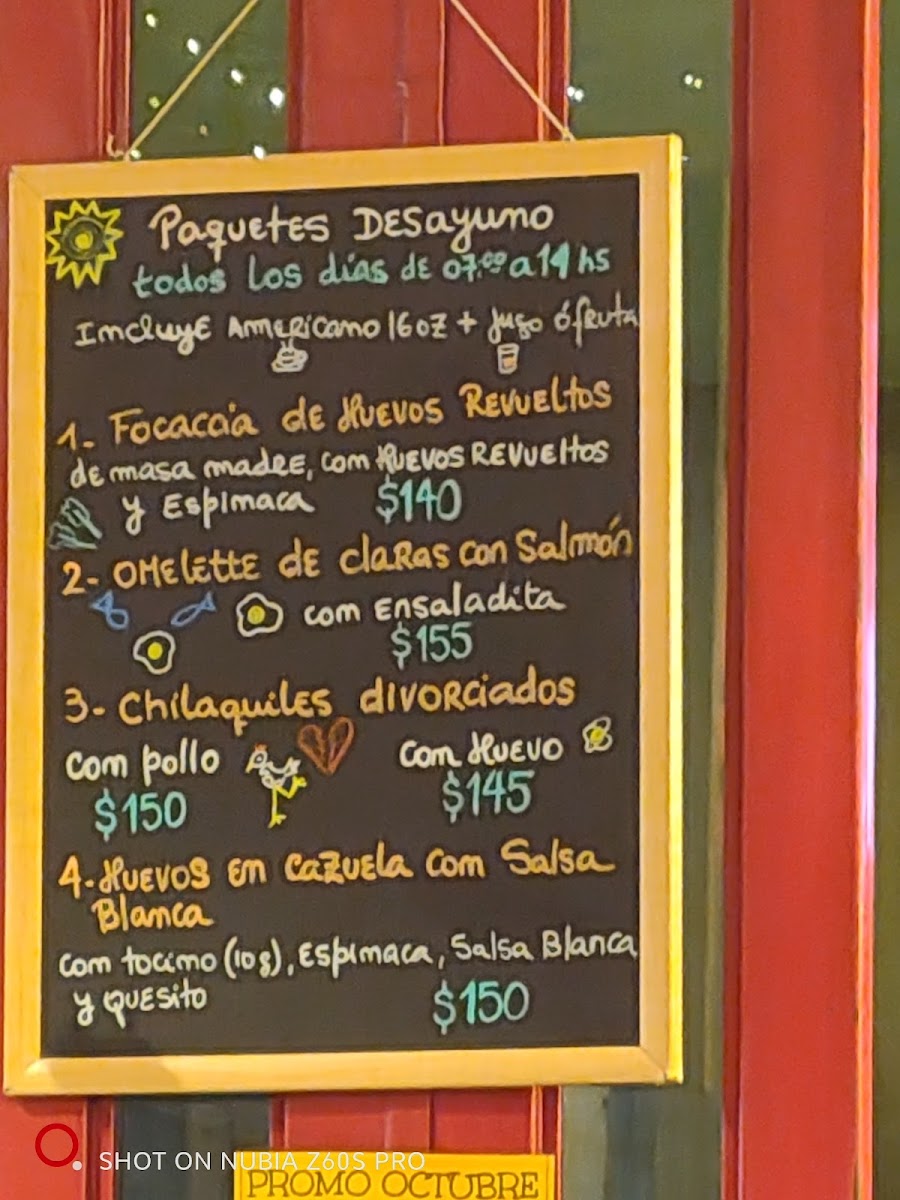 Paquetes Desayuno
todos los días de 07:00 a 14 hs
Incluye Americano 16oz + jugo ó fruta
1- Focaccia de Huevos Revueltos
de masa madre, con Huevos Revueltos
y Espinaca $140
2- Omelette de claras con Salmón
con Ensaladita
$155
3- Chilaquiles divorciados
con pollo con Huevo
$150 $145
4- Huevos en cazuela con Salsa
Blanca
con tocino (10g), Espinaca, Salsa Blanca
y quesito $150
SHOT ON NUBIA Z60S PRO
PROMO OCTUBRE